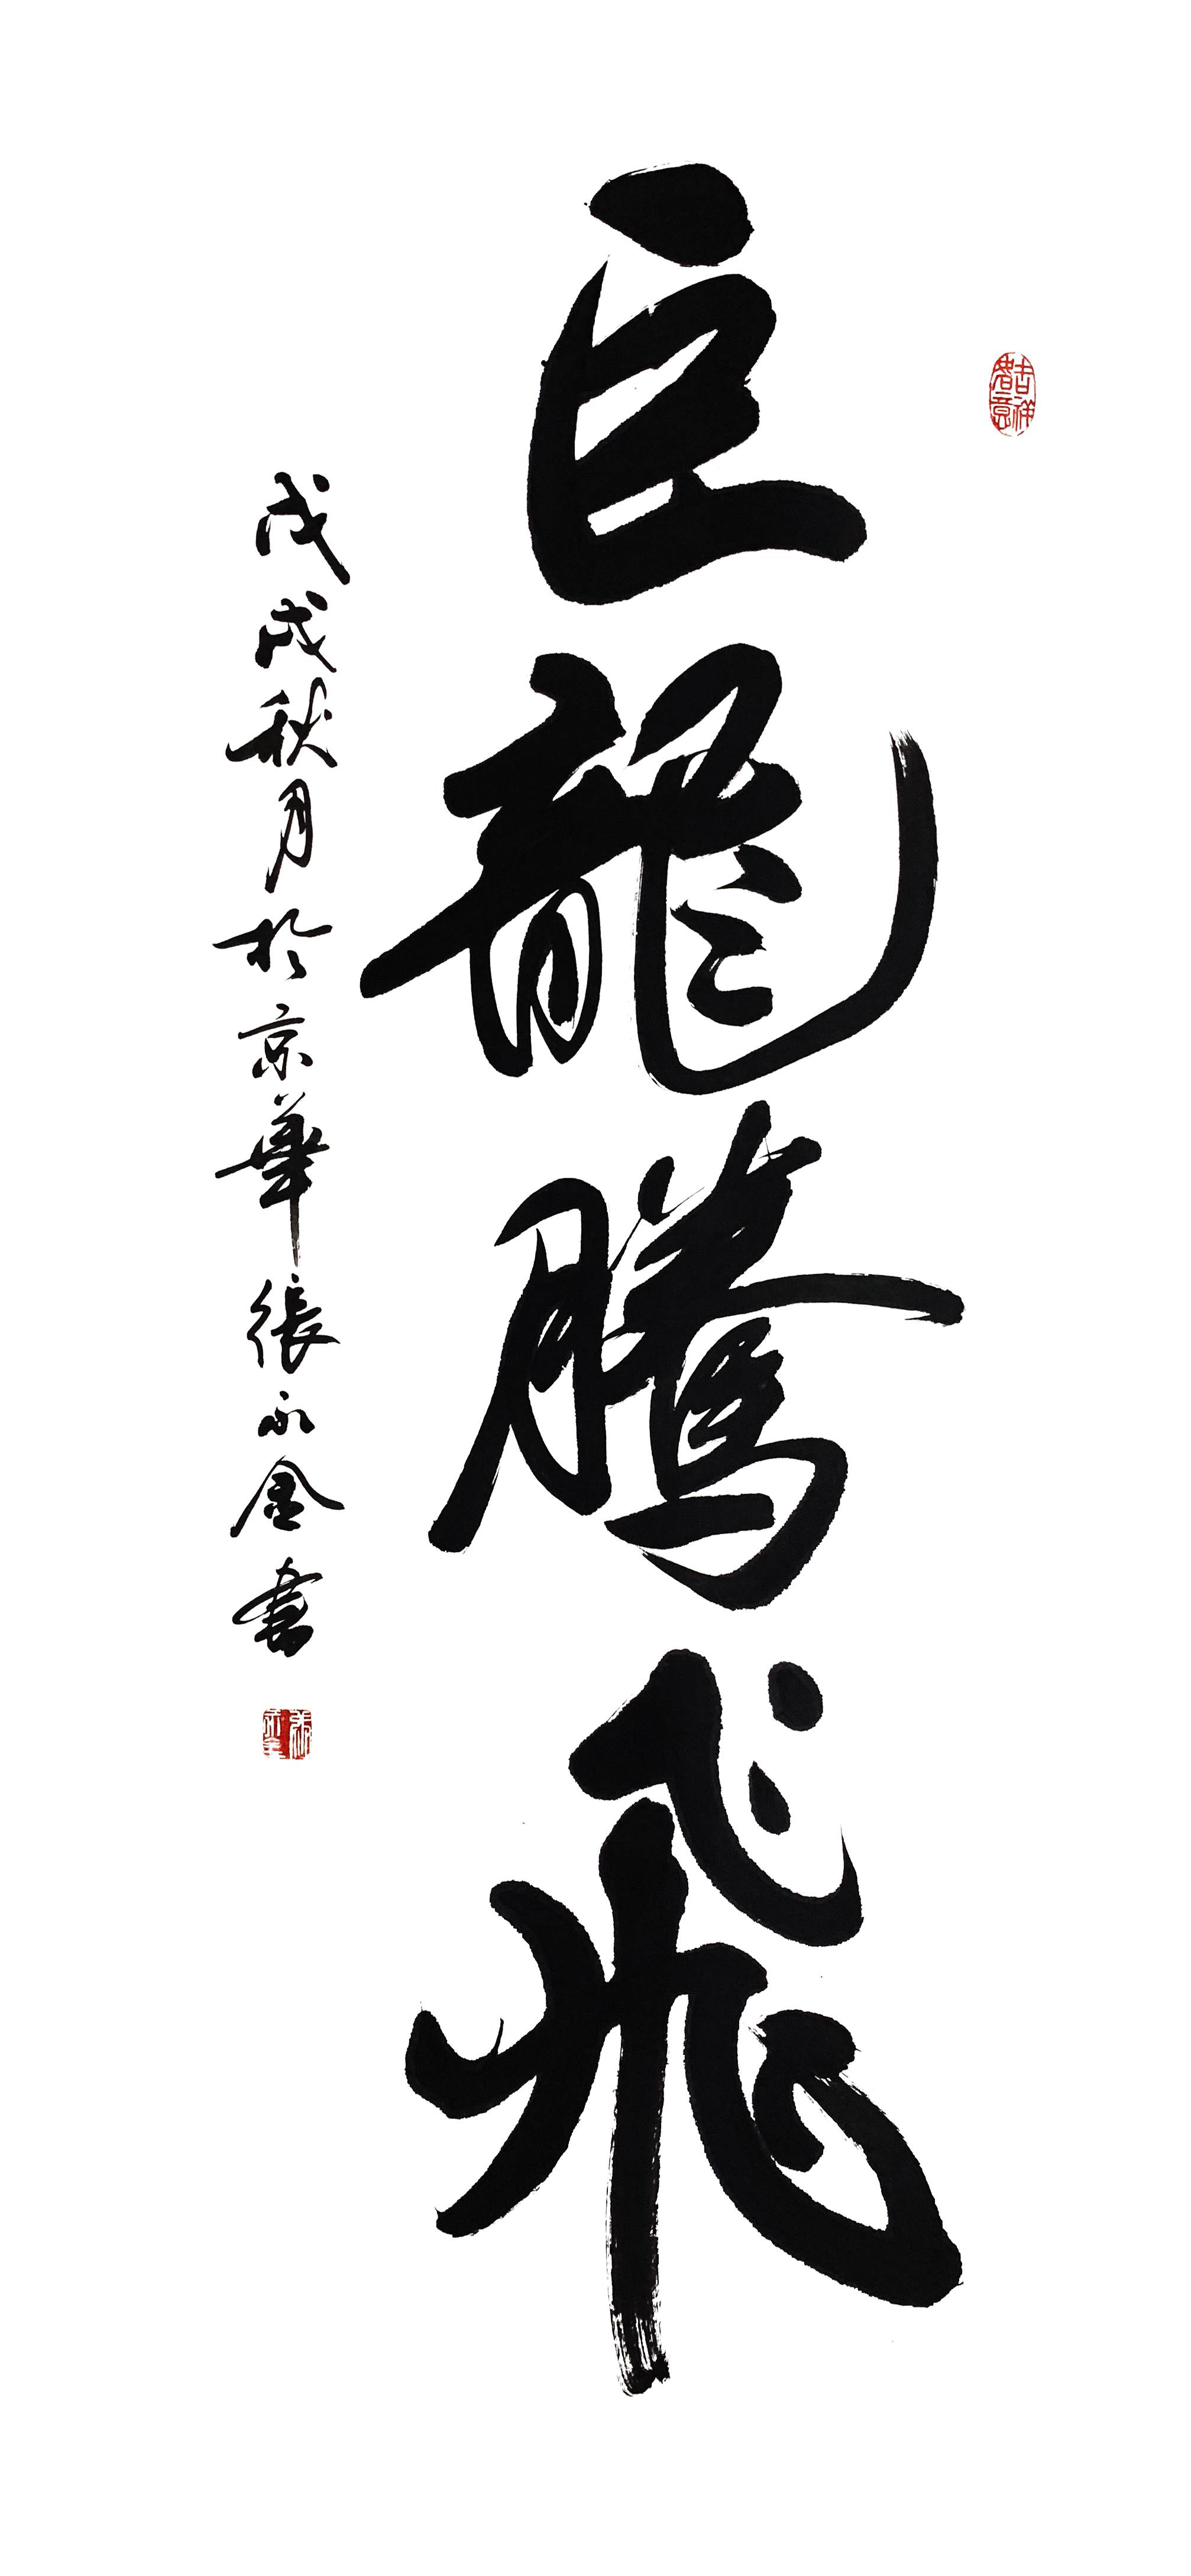 吉祥如意
巨龍騰飛
戊戌秋月於京華張永金書